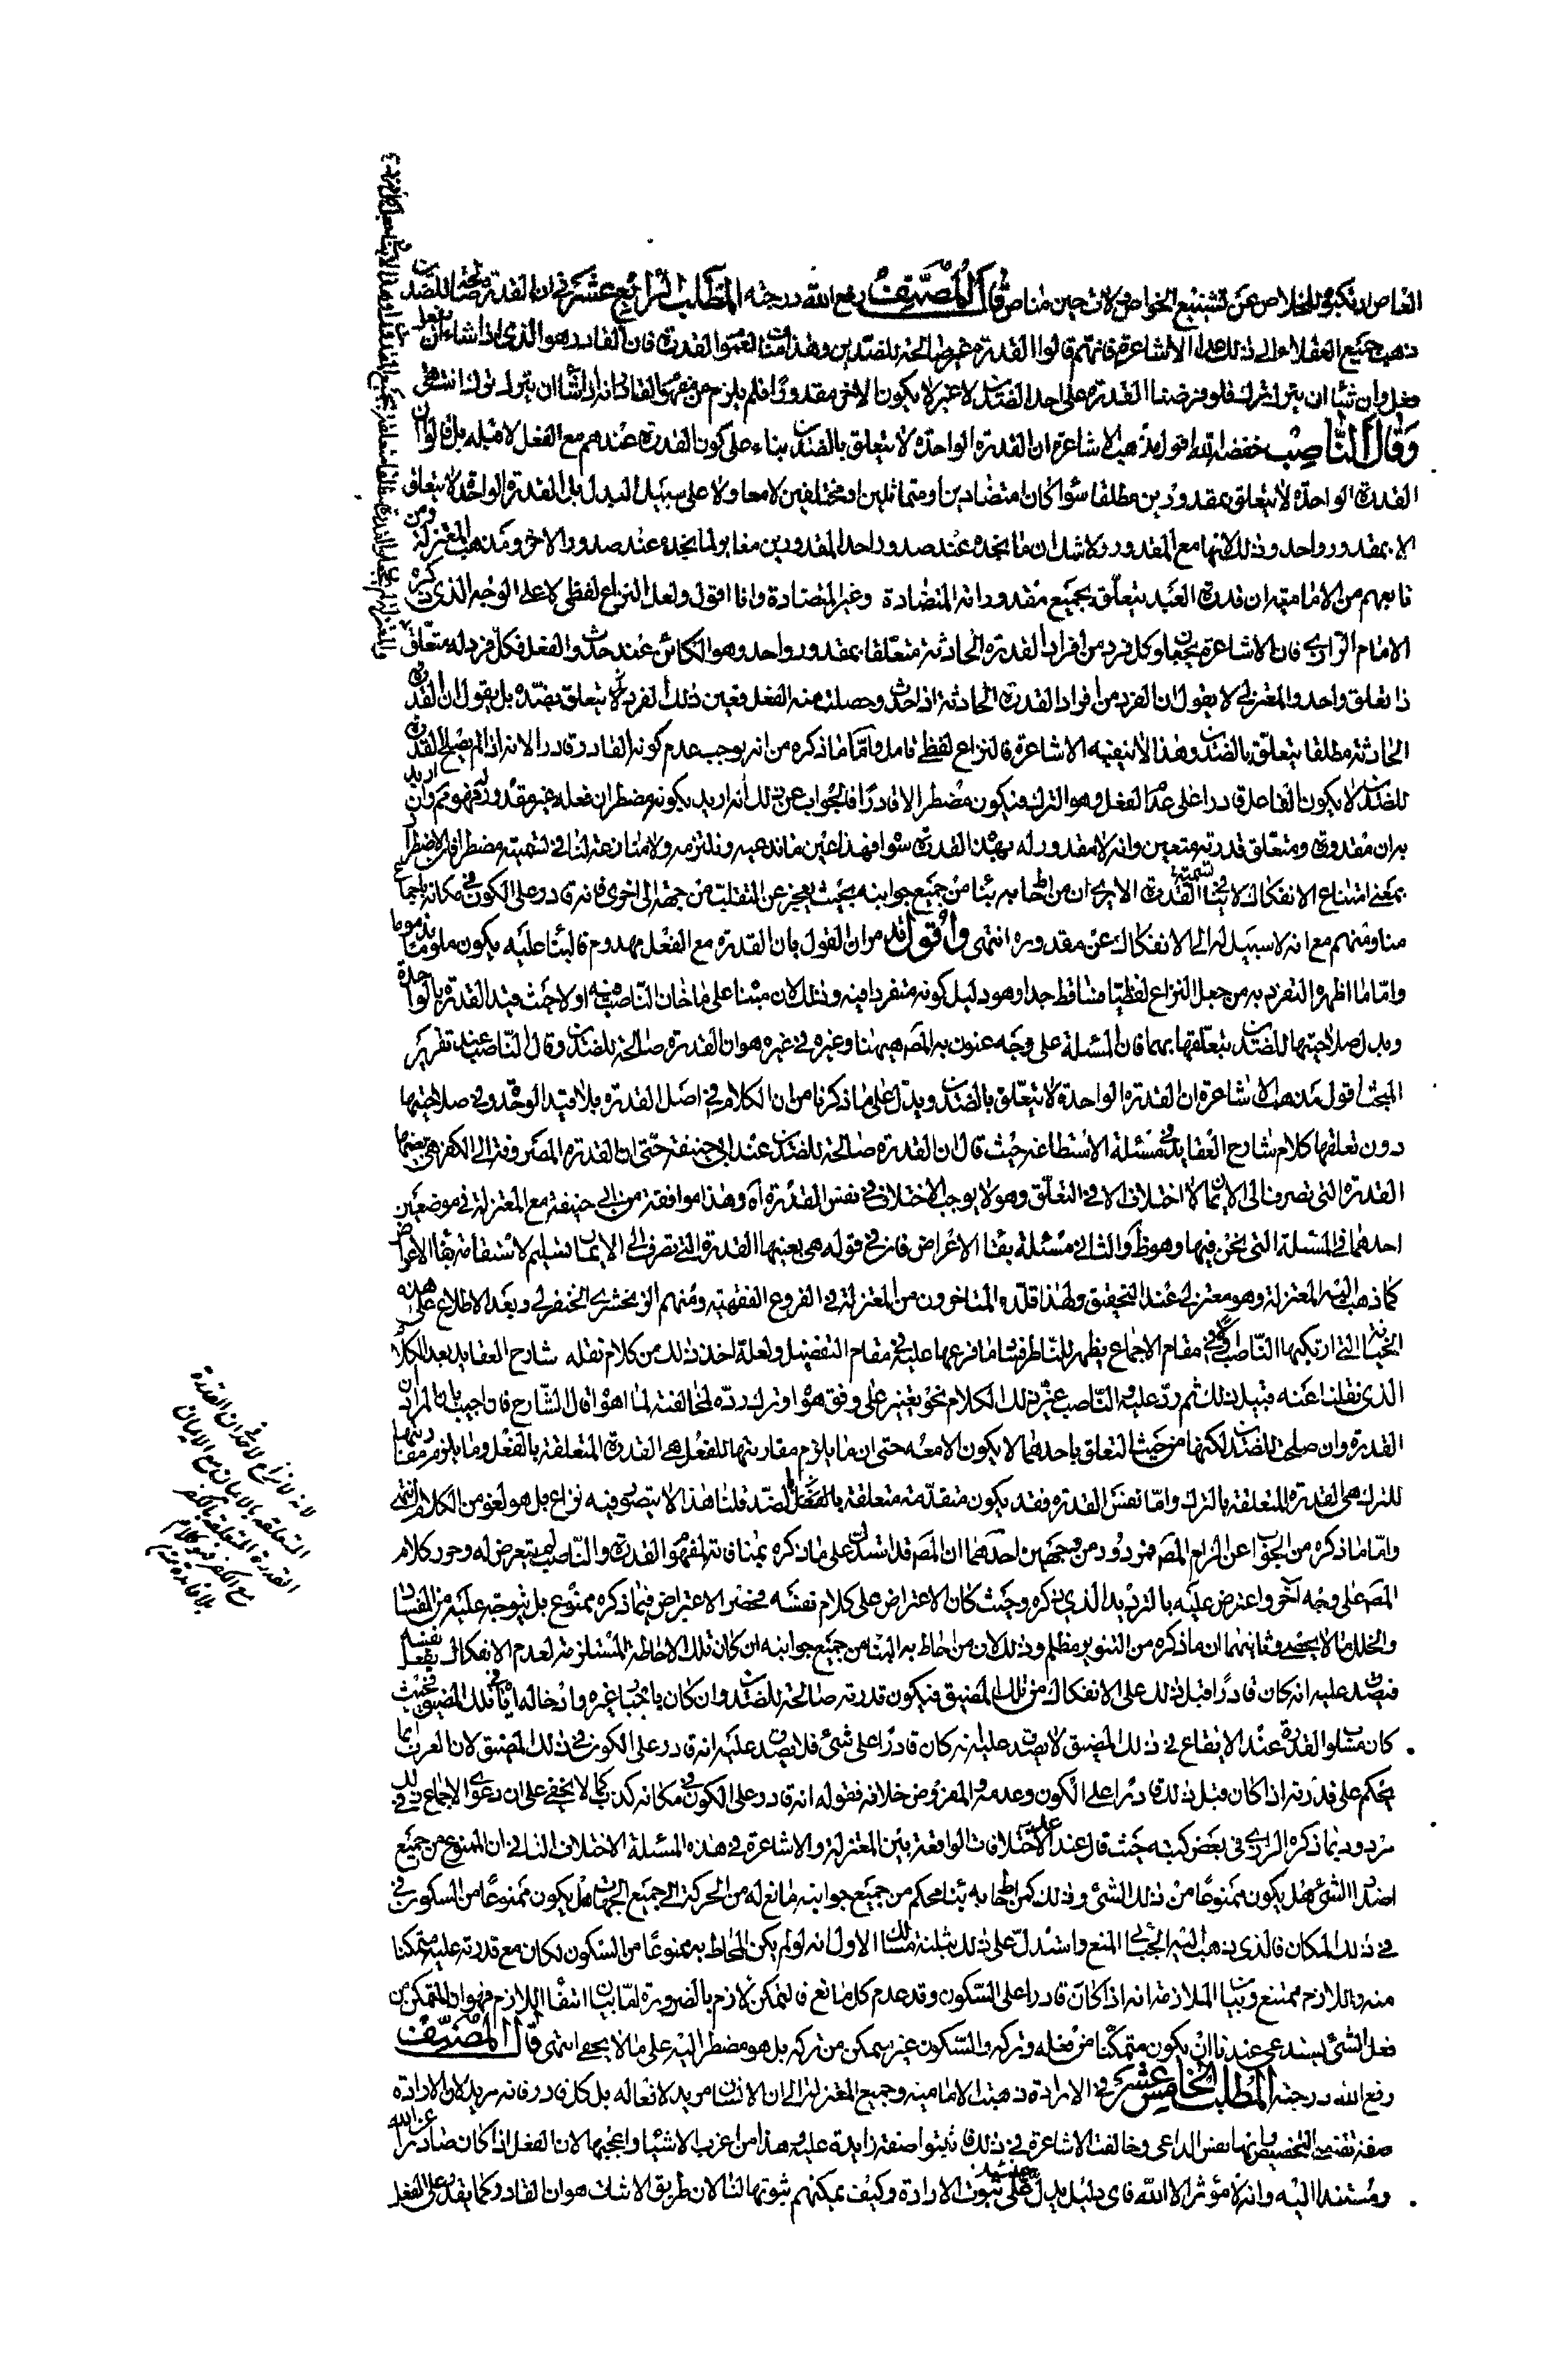 الغاص لا يكبه للخلاص عن تشنيع الخواص لات حين مناص قال المصنف رفع الله درجته المطلب الرابع عشر في ان القدرة صالحة للضدين
ذهب جميع العقلاء الى ذلك عدا الاشاعرة فانهم قالوا القدرة غير صالحة للضدين وهذا مناف لمفهوم القدرة فان القادر هو الذي اذا شاء ان يفعل
فعل وان شاء ان يترك ترك فلو فرضنا القدرة على احد الضدين لا غير لا يكون الاخر مقدورا فلم يلزم من مفهوم القادر انه اذا شاء ان يترك ترك انتهى
وقال الناصب خفضه الله اقول مذهب الاشاعرة ان القدرة الواحدة لا تتعلق بالضدين بناء على كون القدرة عندهم مع الفعل لا قبله بل قالوا ان
القدرة الواحدة لا تتعلق بمقدورين مطلقا سواء كانا متضادين او متماثلين او مختلفين لا معا ولا على سبيل البدل بل القدرة الواحدة لا تتعلق
الا بمقدور واحد وذلك لانها مع المقدور ولا شك ان ما نجده عند صدور احد المقدورين مغاير لما نجده عند صدور الاخر ومذهب المعتزلة ومن
تابعهم من الامامية ان قدرة العبد تتعلق بجميع مقدوراته المتضادة وغير المتضادة وانا اقول ولعل النزاع لفظي لا على الوجه الذي ذكره
الامام الرازي فان الاشاعرة يجعلون كل فرد من افراد القدرة الحادثة متعلقا بمقدور واحد وهو الكائن عند حدوث الفعل فكل فرد له متعلق
ذا تعلق واحد والمعتزلي لا يقول ان الفرد من افراد القدرة الحادثة اذا حدث وحصل منه الفعل فعين ذلك الفرد لا يتعلق بضده بل يقول ان القدرة
الحادثة مطلقا يتعلق بالضدين وهذا لا ينفيه الاشاعرة فالنزاع لفظي تامل واما ما ذكره من انه يوجب عدم كونه القادر قادرا لانه اذا لم يصلح القدرة
للضدين لا يكون الفاعل قادرا على عدم الفعل وهو الترك فيكون مضطرا لا قادرا فالجواب عن ذلك انه اريد بكونه مضطرا ان فعله غير مقدور له فهو مم وان اريد
به ان مقدوره ومتعلق قدرته متعين وانه لا مقدور له بهذه القدرة سواه فهذا عين ما ندعيه ونلتزمه ولا منازعة لنا في تسميته مضطرا فان الاضطرار
بمعنى امتناع الانفكاك لا ينافي القدرة الا يرى ان من احاط به بناء من جميع جوانبه بحيث يعجز عن التقلب من جهة الى اخرى فانه قادر على الكون في مكانه باجماع
منا ومنهم مع انه لا سبيل له الى الانفكاك عن مقدوره انتهى واقول قد مر ان القول بان القدرة مع الفعل مهدوم فالبناء عليه يكون ملوما مذموما
واما ما اظهر التفرد به من جعل النزاع لفظيا فساقط جدا وهو دليل كونه متفردا فيه وذلك لان مبناه على ما خان الناصب فيه اولا حيث قيد القدرة بالواحدة
وبدل صلاحيتها للضدين بتعلقها بهما فان المسئلة على وجه عنون به المصـ هيهنا وغيره في غيره هو ان القدرة صالحة للضدين وقال الناصب عند تقرير
المبحث اقول مذهب الاشاعرة ان القدرة الواحدة لا تتعلق بالضدين ويدل على ما ذكرنا من ان الكلام في اصل القدرة بلا قيد الوحدة وفي صلاحيتها
دون تعلقها كلام شارح العقايد في مسئلة الاستطاعة حيث قال ان القدرة صالحة للضدين عند ابي حنيفة حتى ان القدرة المصروفة الى الكفر هي بعينها
القدرة التي تصرف الى الايمان لا اختلاف الا في التعلق وهو لا يوجب الاختلاف في نفس القدرة اه وهذا موافقة من ابي حنيفة مع المعتزلة في موضعين
احدهما في المسئلة التي نحن فيها وهو ظ والثاني مسئلة بقاء الاعراض فان في قوله هي بعينها القدرة التي تصرف الى الايمان تسليم لاستفاضة بقاء الاعراض
كما ذهب اليه المعتزلة وهو معتزلي عند التحقيق ولهذا قلده المتاخرون من المعتزلة في الفروع الفقهية ومنهم الزمخشري الحنفي وبعد الاطلاع على هذه
الخيانة التي ارتكبها الناصب في مقام الاجماع يظهر للناظر فساد ما فرعها عليه في مقام التفصيل ولعله اخذ ذلك من كلام نقله شارح العقايد بعد الكلام
الذي نقلنا عنه قبيل ذلك ثم رد عليه الناصب غير ذلك الكلام نحو تغيير على وفق هواه وترك رده لمخالفته لما اهواه قال الشارح قد اجيب بان المراد ان
القدرة وان صلحت للضدين لكنها من حيث التعلق باحدهما لا يكون الا معه حتى ان ما يلزم مقارنتها للفعل هي القدرة المتعلقة بالفعل وما يلزم مقارنتها
للترك هي القدرة المتعلقة بالترك واما نفس القدرة فقد يكون متقدمة متعلقة بالضدين قلنا هذا لا يتصور فيه نزاع بل هو لغو من الكلام انتهى
واما ما ذكره من الجواب عن الزام المصـ فمردود من وجهين احدهما ان المصـ قد استدل على ما ذكره بمنافاته لمفهوم القدرة والناصب لم يتعرض له وحرر كلام
المصـ على وجه اخر واعترض عليه بالترديد الذي ذكره وحيث كان الاعتراض على كلام نفسه فحصر الاعتراض فيما ذكره ممنوع بل يتوجه عليه من الفساد
والخلل ما لا يحصى وثانيهما ان ما ذكره من التنوير مظلم وذلك لان من احاط به البناء من جميع جوانبه ان كان تلك الاحاطة المستلزمة لعدم الانفكاك بفعل نفسه
فيصدق عليه انه كان قادرا قبل ذلك على الانفكاك من تلك المضيق فيكون قدرته صالحة للضدين وان كان باجبار غيره وادخاله اياه في تلك المضيق فحيث
كان مسلوب القدرة عند الايقاع في ذلك المضيق لا يصدق عليه انه كان قادرا على شئ فلا يصدق عليه انه قادر على الكون في ذلك المضيق لان العرف انما
يحكم على قدرته اذا كان قبل ذلك قادرا على الكون وعدمه والمفروض خلافه فقوله انه قادر على الكون في مكانه كذب كما لا يخفى على ان دعوى الاجماع في ذلك
مردود بما ذكره الرازي في بعض كتبه حيث قال عند الاختلافات الواقعة بين المعتزلة والاشاعرة في هذه المسئلة الاختلاف الثاني ان الممنوع من جميع
اضداد الشئ هل يكون ممنوعا من ذلك الشئ وذلك كمن احاط به بناء محكم من جميع جوانبه مانع له من الحركة الى جميع الجهات هل يكون ممنوعا من السكون في
في ذلك المكان فالذي ذهب اليه الجبائي المنع واستدل على ذلك بثلثة مسالك الاول انه لو لم يكن المحاط به ممنوعا من السكون لكان مع قدرته عليه متمكنا
منه واللازم ممتنع وبيان الملازمة انه اذا كان قادرا على السكون وقد عدم كل مانع فالتمكن لازم بالضرورة اما بيان انتفاء اللازم فهو ان التمكن من
فعل الشئ يستدعي عندنا ان يكون متمكنا من فعله وتركه والسكون غير متمكن من تركه بل هو مضطر اليه على ما لا يخفى انتهى قال المصنف
رفع الله درجته المطلب الخامس عشر في الارادة ذهبت الامامية وجميع المعتزلة الى ان الانسان مريد لافعاله بل كل قادر فانه مريد لان الارادة
صفة تقتضي التخصيص وانها نفس الداعي وخالفت الاشاعرة في ذلك فاثبتوا صفة زايدة عليه وهذا من اغرب الاشياء واعجبها لان الفعل اذا كان صادرا عن الله
ومستندا اليه وانه لا مؤثر الا الله فاي دليل يدل على ثبوت الارادة وكيف يمكنهم ثبوتها لنا لان طريق الاثبات هو ان القادر كما يقدر على الفعل
لانه لا نزاع لاحد في ان القدرة
المتعلقة بالايمان مع الايمان
القدرة المتعلقة بالكفر
مع الكفر فيه كلام
بلا فايدة